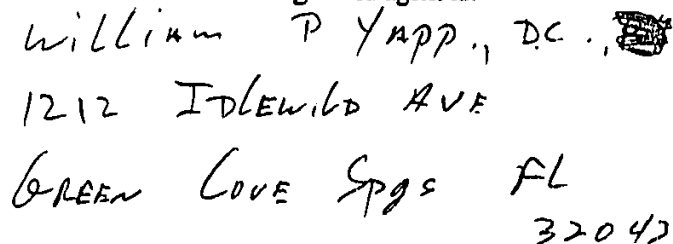 William P Yapp., D.C.,
1212 Idlewild Ave
Green Cove Spgs FL
32043